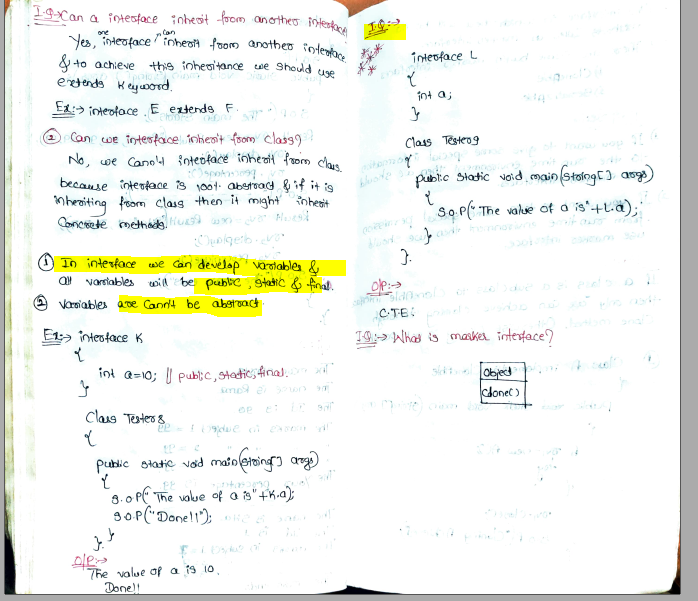 I.Q:→ Can a interface inherit from another interface
Yes, one interface can inherit from another interface
& to achieve this inheritance we should use
extends Keyword.
Ex:→ interface E extends F.
② Can we interface inherit from class?
No, we Cann't interface inherit from class.
because interface is 100% abstract & if it is
inheriting from class then it might inherit
Concrete methods.
① In interface we can develop variables &
all variables will be public, static & final.
② Variables are Cann't be abstract
Ex:→ interface K
{
int a=10; // public, static, final.
}
Class Tester8
{
public static void main(String[] args)
{
S.o.P("The value of a is"+K.a);
S.o.P("Done!!");
}
}.
O/P:→
The value of a is 10.
Done!!
I.Q:→
interface L
{
int a;
}
Class Tester9
{
public static void main(String[] args)
{
S.o.P("The value of a is"+L.a);
}
}.
O/P:→
C.T.E:
I.Q:→ What is marker interface?
Object
Clone()